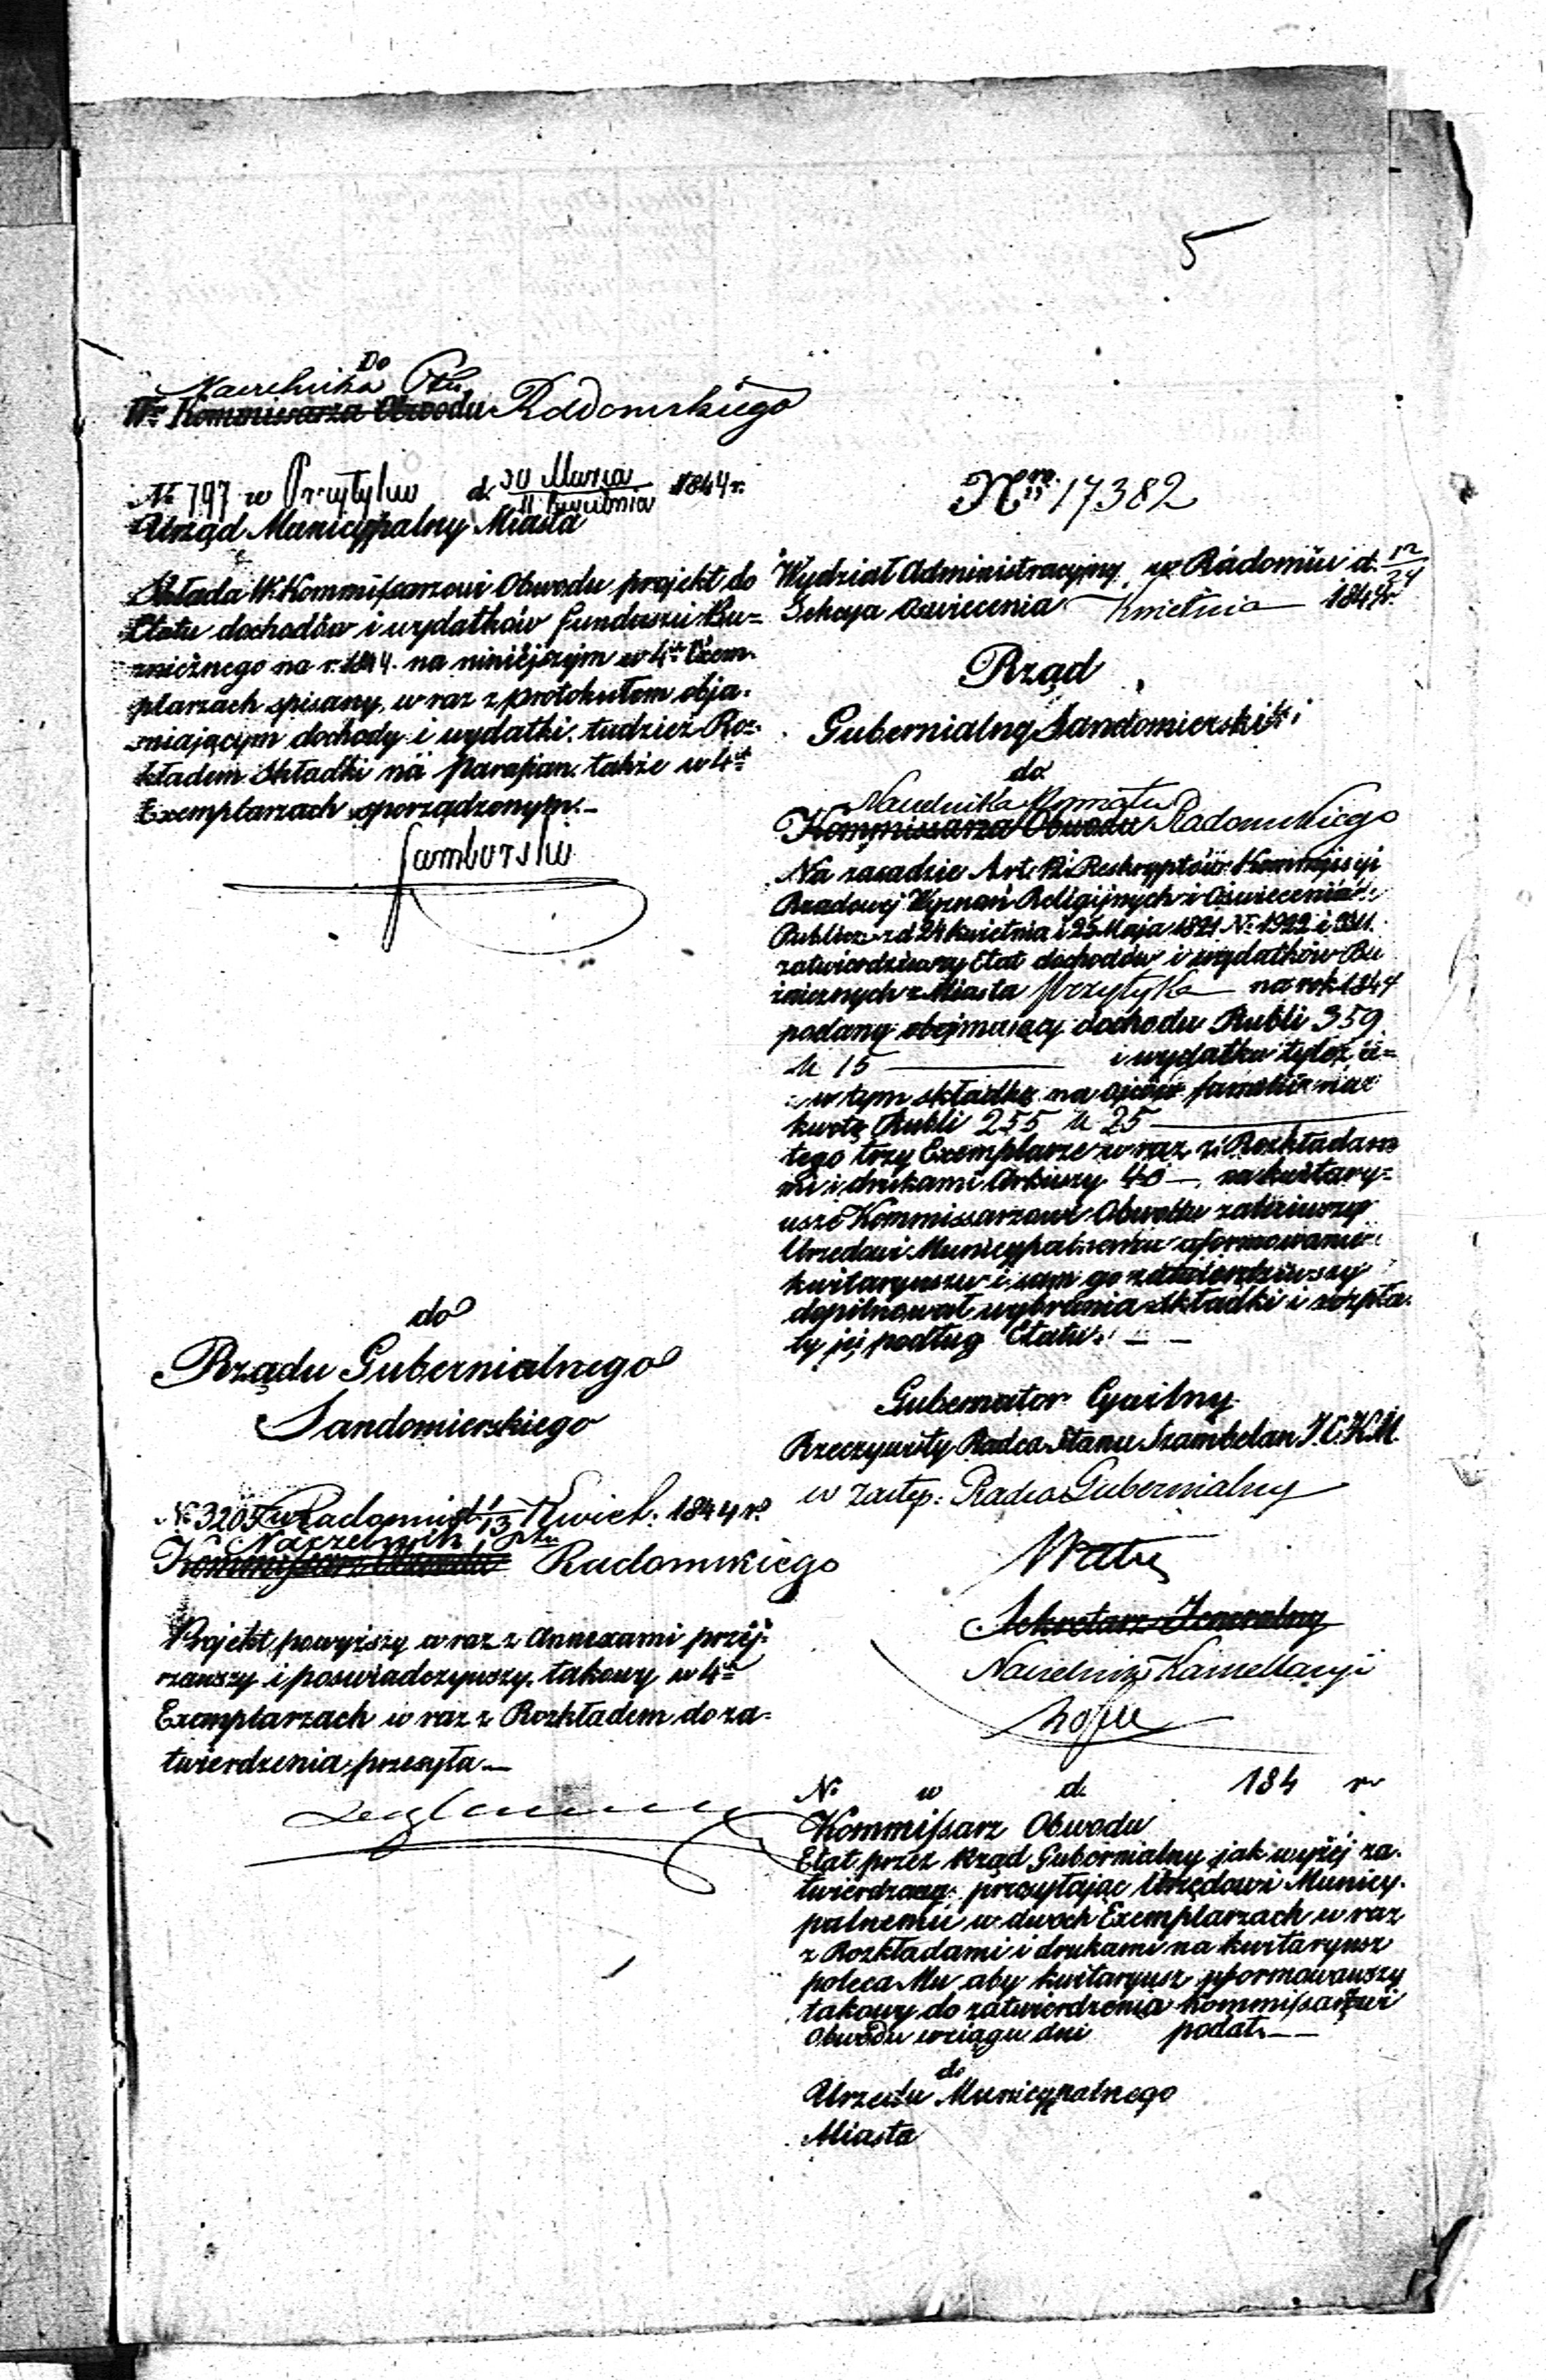 5
Do
Naczelnika Ptu
W<sup>o</sup> Kommissarza Obwodu Radomskiego
N<sup>o</sup> 797 w Przytyku d. 30 Marca / 11 Kwietnia 1844 r.
Urząd Municypalny Miasta
Składa W. Kommissarzowi Obwodu projekt do
Etatu dochodów i wydatków funduszu Bu=
żnicznego na r. 1844. na niniéjszym w 4<sup>ch</sup> Exem.
plarzach spisany, w raz z protokułem obja.
śniającym dochody i wydatki, tudzież Roz.
kładem Składki na Parafian, także w 4<sup>ch</sup>
Exemplarzach sporządzonym.—
Samborski
do
Rządu Gubernialnego
Sandomierskiego
N<sup>o</sup> 3205 w Radomiu d. 1/13 Kwiet: 1844 r.
Naczelnik Ptu
Kommissarz Obwodu Radomskiego
Projekt powyższy w raz z Annexami przéj=
rzawszy i poswiadczywszy, takowy w 4<sup>ch</sup>
Exemplarzach w raz z Rozkładem do za=
twierdzenia przesyła—
N<sup>ro</sup> 17382
Wydział Administracyjny w Radomiu d. 12/24
Sekcya Oswiecenia Kwietnia 1844 r.
Rząd
Gubernialny Sandomierski
do
Naczelnika Powiatu
Kommissarza Obwodu Radomskiego
Na zasadzie Art: 12 Reskryptów Kommissyi
Rządowéj Wyznań Religijnych i Oświecenia
Publicz: z d 24 Kwietnia i 25 Maja 1821 N<sup>o</sup> 1922 i
zatwierdziwszy Etat dochodów i wydatków Bu
żnicznych z Miasta Przytyka na rok 1844
podany obejmujący dochodu Rubli 359
k 15 — i wydatku tyleż a=
w tym składkę na Ojców familii na
kwotę Rubli 255 k 25 —
tego trzy Exemplarze w raz z Rozkładam
mi i drukami Arkuszy 40 — na kwitary=
usze Kommissarzowi Obwodu
Urzędowi Municypalnemu uformowanie
kwitaryuszu i sam go zatwierdziwszy
dopilnował wybrania składki i wypła.
ty jéj podług Etatu. — —
Gubernator Cywilny
Rzeczywisty Radca Stanu Szambelan J.C.K.M.
w zastęp: Radca Gubernialny
Sekretarz Jeneralny
Naczelnik Kancellaryi
N<sup>o</sup> w d. 184 r
Kommissarz Obwodu
Etat przez Rząd Gubernialny jak wyżéj za.
twierdzony przesyłając Urzędowi Municy.
palnemu w dwoch Exemplarzach w raz
z Rozkładami i drukami na kwitaryusz
poleca Mu aby kwitaryusz uformowawszy
takowy do zatwierdzenia Kommissarzowi
Obwodu w ciągu dni podał. — —
do
Urzędu Municypalnego
Miasta